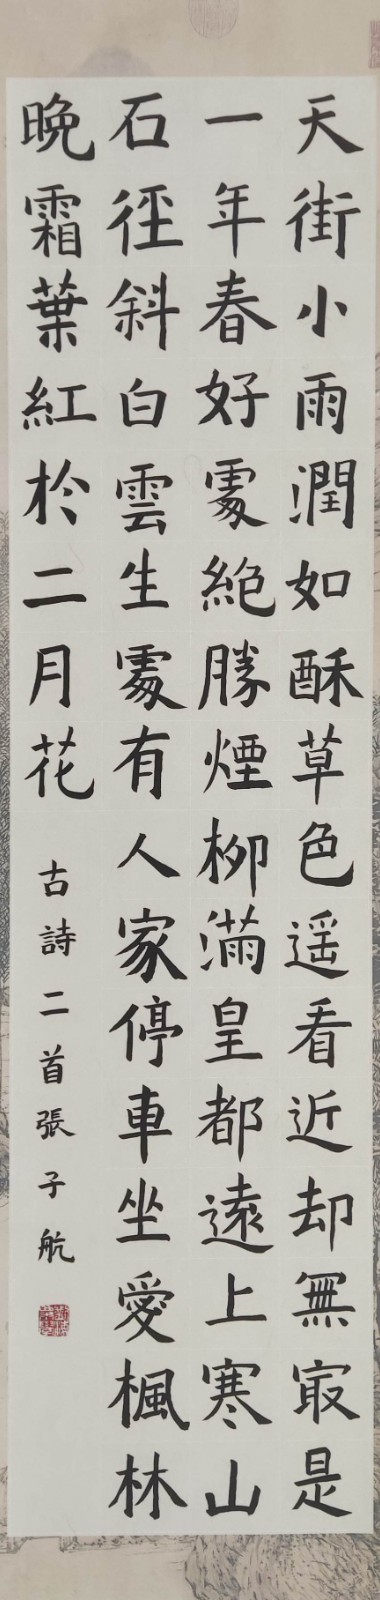 天街小雨潤如酥草色遥看近却無㝡是
一年春好處絶勝煙柳滿皇都遠上寒山
石徑斜白雲生處有人家停車坐愛楓林
晚霜葉紅於二月花
古詩二首張子航